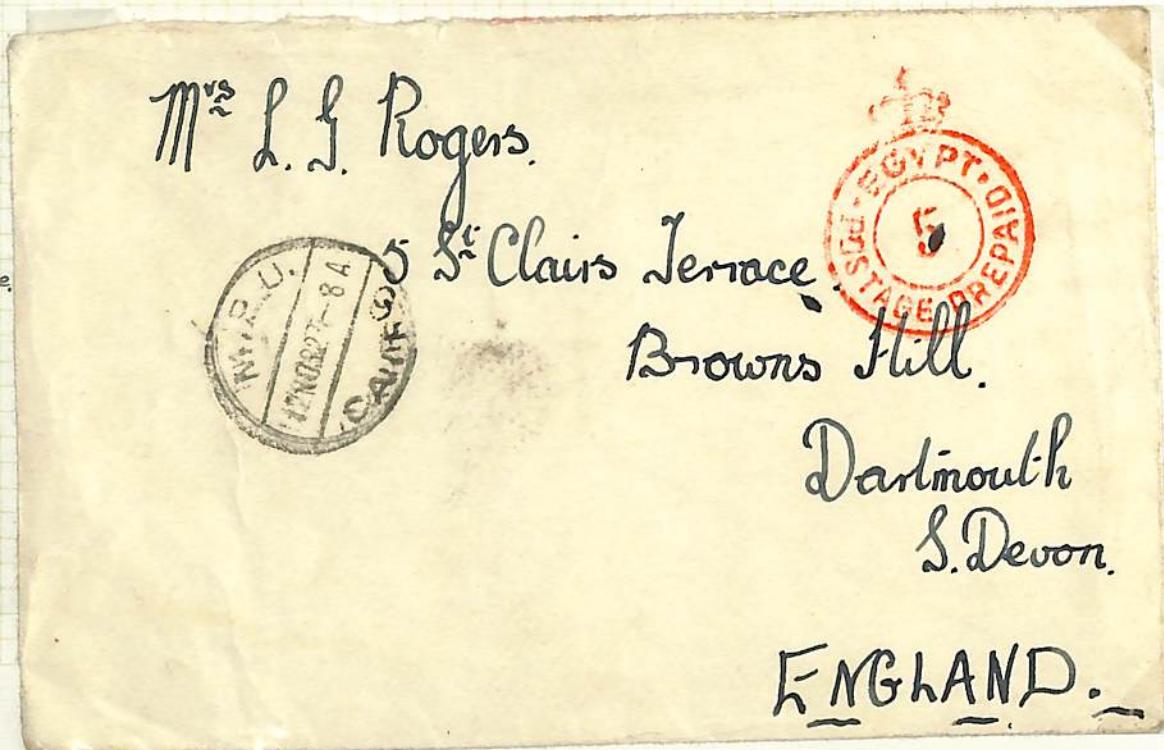 Mrs L. G. Rogers.
5 St Clairs Terrace.
Browns Hill.
Dartmouth
S. Devon.
ENGLAND.
EGYPT
POSTAGE PREPAID
5
M.P.O.
CAIRO
e.